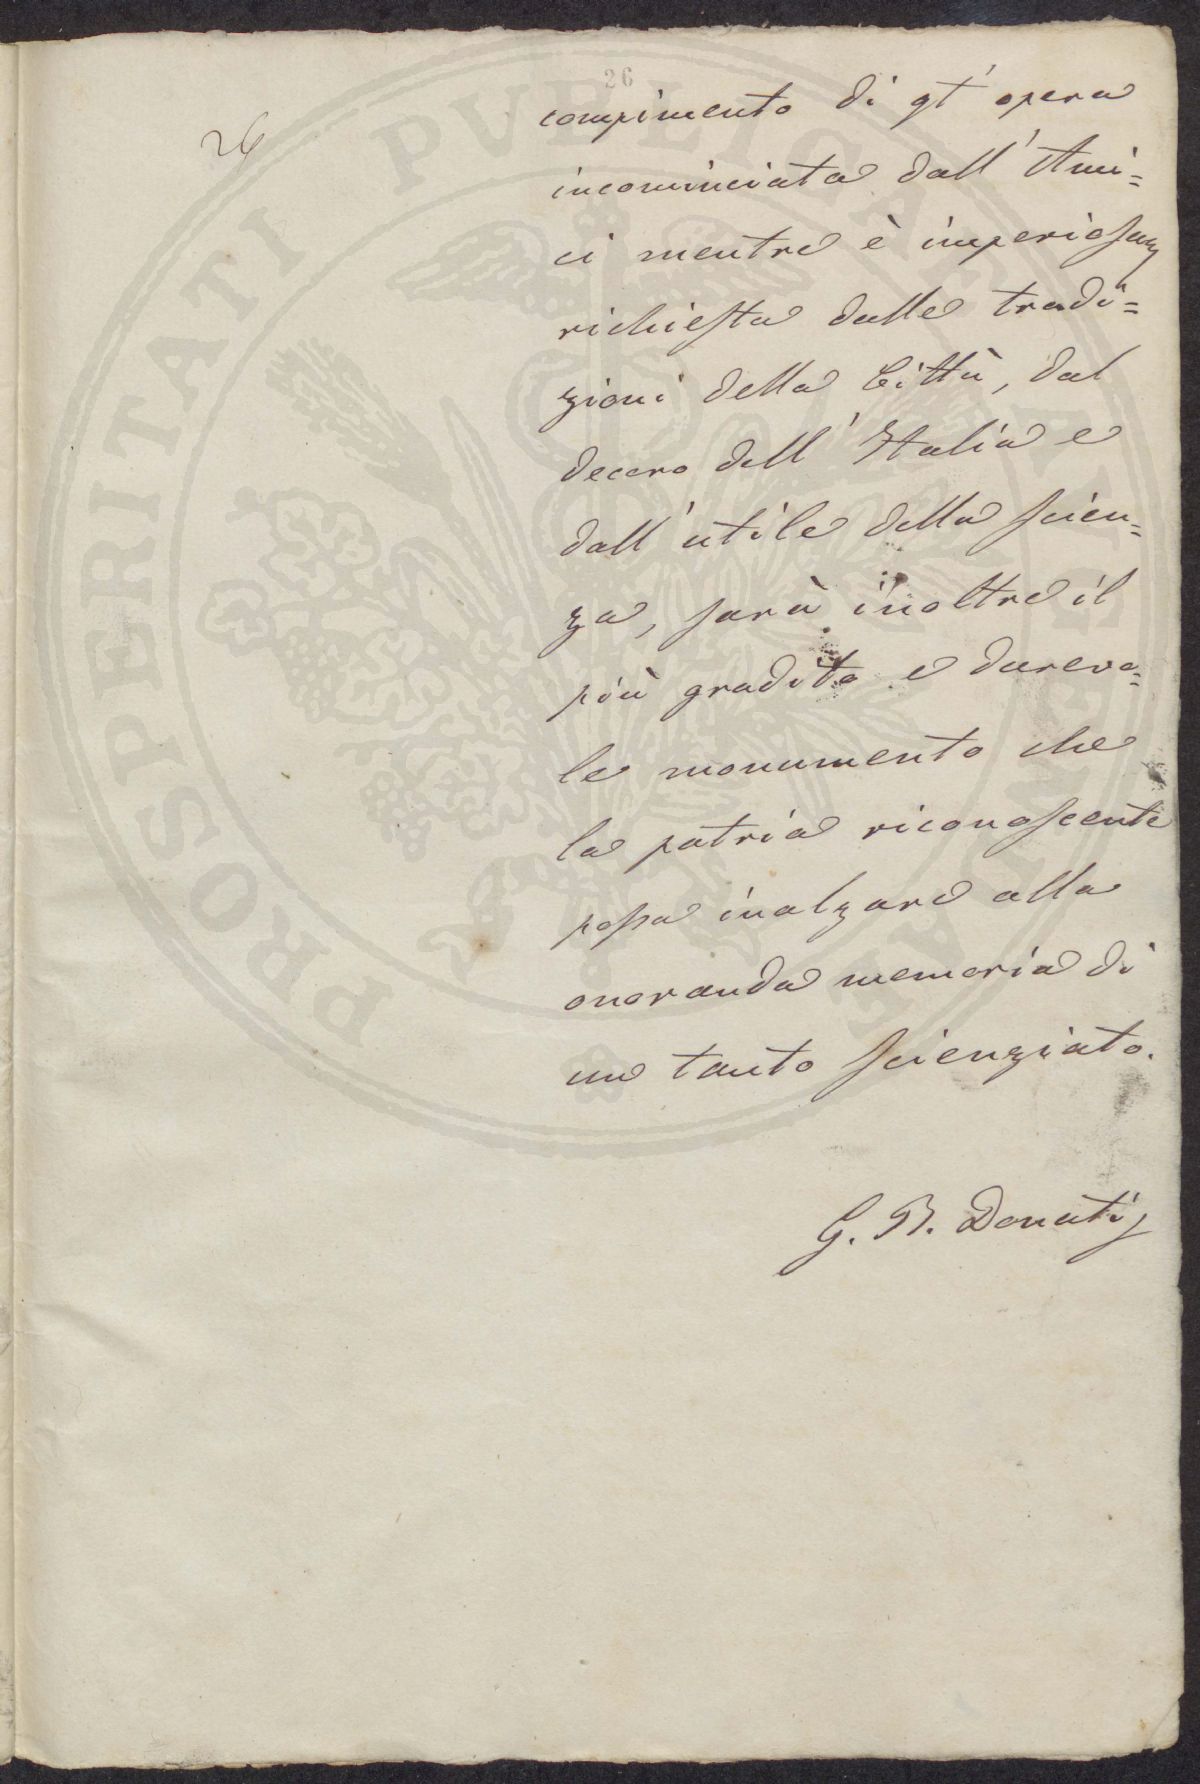 26
26
compimento di qt' opera
incominciata dall' Ami=
ci mentre è imperiosam
richiesta dalle tradi=
zioni della Città, dal
decoro dell' Italia e
dall' utile della scien=
za, sarà inoltre il
più gradito e durevo=
le monumento che
la patria riconoscente
possa inalzare alla
onoranda memoria di
uno tanto scienziato.
G. B. Donati
PROSPERITATI PVBLICAE AVGENDAE